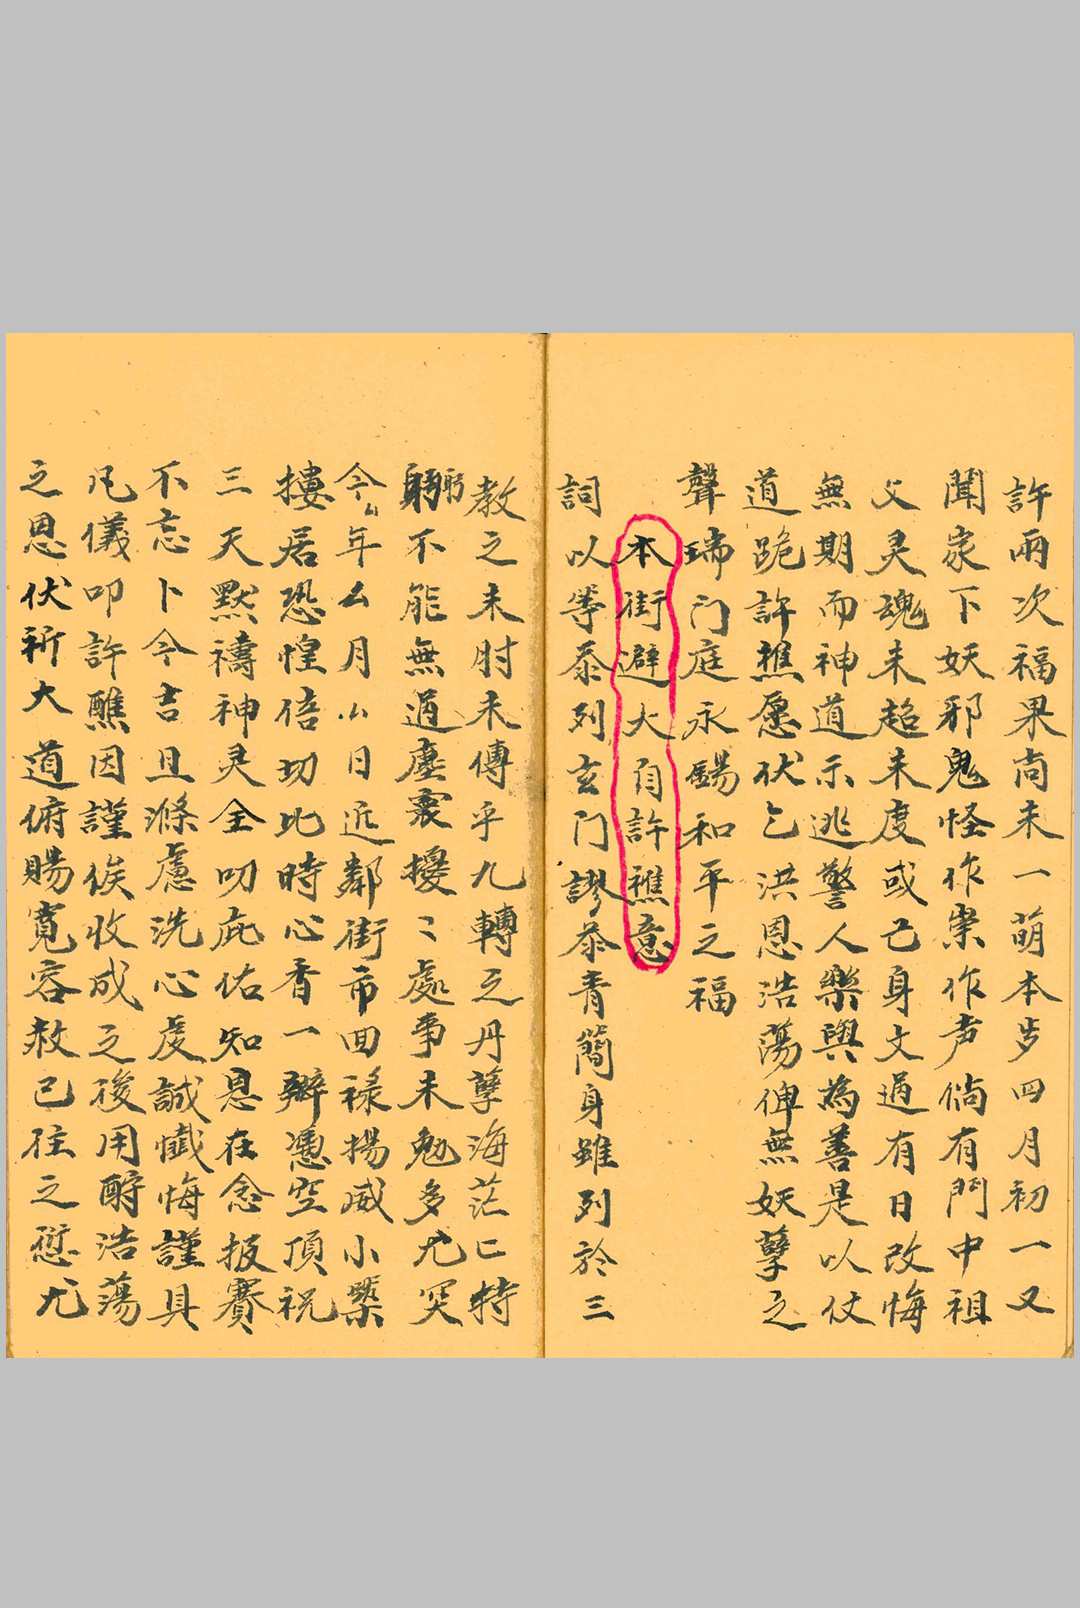 許兩次福果尚未一萌本歩四月初一又
聞家下妖邪鬼怪作祟作声倘有門中祖
父灵魂未超未度或己身文過有日改悔
無期而神道示逃警人樂與為善是以仗
道跪許樵愿伏乞洪恩浩蕩俾無妖孽之
聲瑞门庭永錫和平之福
本街避火自許樵意
詞以等忝列玄门謬忝青簡身雖列於三
教之未肘未傳乎九轉之丹孽海茫〻特
躬不能無過塵寰擾〻處事未勉多尤突
今年厶月小日近鄰街市回祿揚威小槼
摟居恐惶倍切此時心香一瓣憑空頂祝
三天默禱神灵全叨庇佑知恩在念报賽
不忘卜今吉旦滌慮洗心虔誠懺悔謹具
凡儀叩許醮因謹俟收成之後用酧浩蕩
之恩伏祈大道俯賜寬容赦已往之愆尤